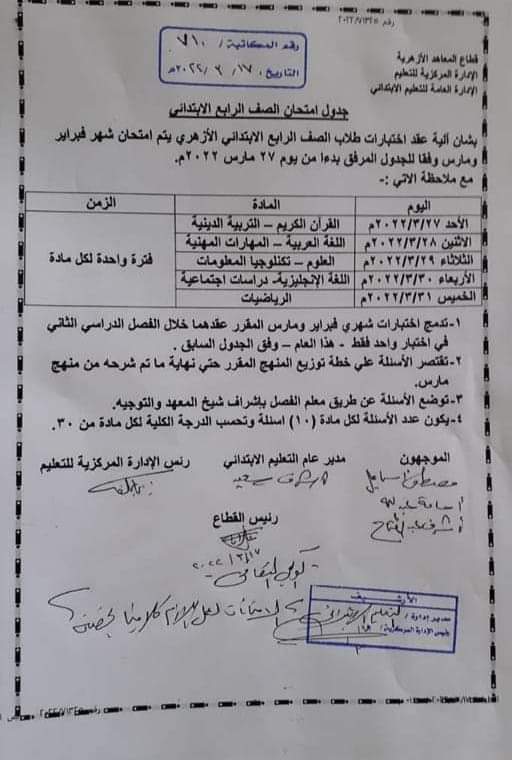 رقم ٢٠٢٢/٧١٣٤٥
رقم المكاتبة / ٧١٠
التاريخ ١٧ / ٣ / ٢٠٢٢م
قطاع المعاهد الأزهرية
الإدارة المركزية للتعليم
الإدارة العامة للتعليم الابتدائي
جدول امتحان الصف الرابع الابتدائي
بشان ألية عقد اختبارات طلاب الصف الرابع الابتدائي الأزهري يتم امتحان شهر فبراير
ومارس وفقا للجدول المرفق بدءا من يوم ٢٧ مارس ٢٠٢٢م.
مع ملاحظة الاتي :-
اليوم المادة الزمن
الأحد ٢٠٢٢/٣/٢٧م القرآن الكريم – التربية الدينية
الاثنين ٢٠٢٢/٣/٢٨م اللغة العربية – المهارات المهنية
الثلاثاء ٢٠٢٢/٣/٢٩م العلوم – تكنلوجيا المعلومات فترة واحدة لكل مادة
الأربعاء ٢٠٢٢/٣/٣٠م اللغة الإنجليزية- دراسات اجتماعية
الخميس ٢٠٢٢/٣/٣١م الرياضيات
١-تدمج اختبارات شهري فبراير ومارس المقرر عقدهما خلال الفصل الدراسي الثاني
في اختبار واحد فقط - هذا العام – وفق الجدول السابق .
٢-تقتصر الأسئلة علي خطة توزيع المنهج المقرر حتي نهاية ما تم شرحه من منهج
مارس.
٣-توضع الأسئلة عن طريق معلم الفصل بإشراف شيخ المعهد والتوجيه.
٤-يكون عدد الأسئلة لكل مادة (١٠) اسئلة وتحسب الدرجة الكلية لكل مادة من ٣٠.
الموجهون مدير عام التعليم الابتدائي رئس الإدارة المركزية للتعليم
رئيس القطاع
٢٠٢٢/٣/١٧
الأرشيف
مدير إدارة /
رئيس الإدارة المركزية/